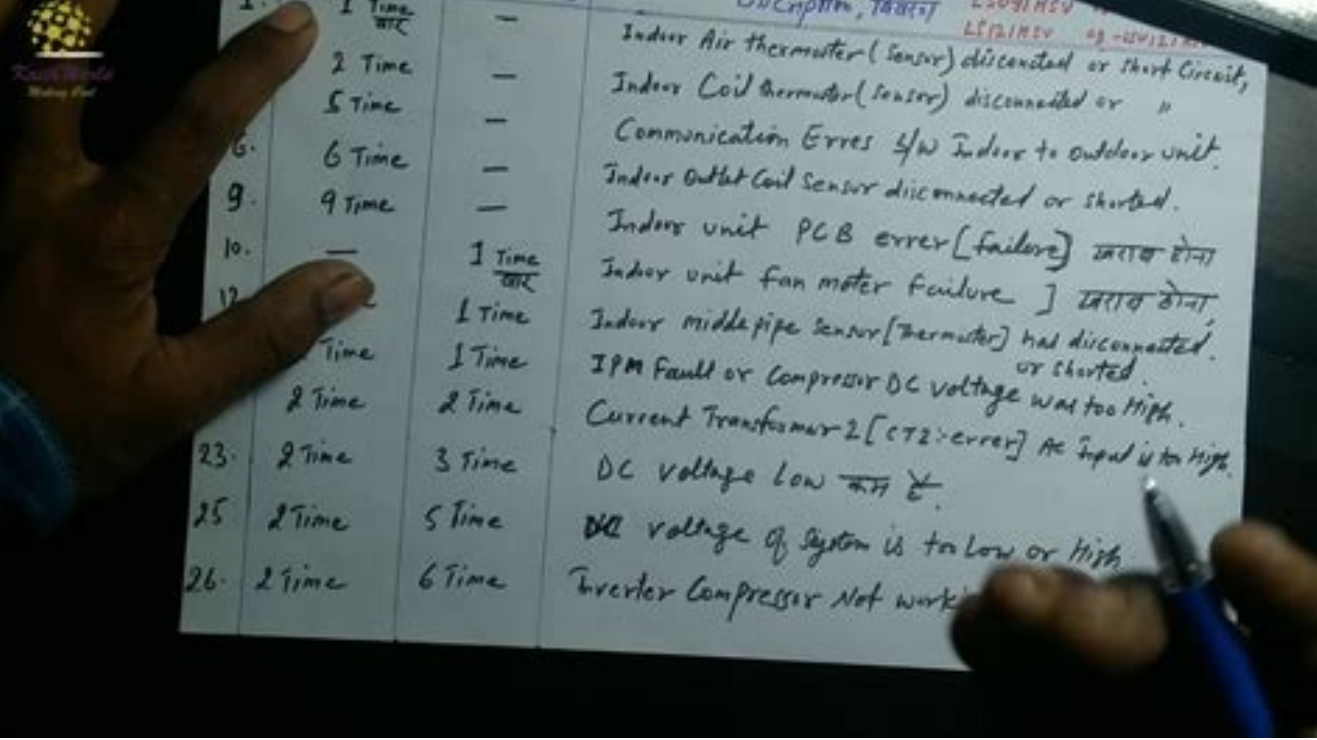 Description, विवरण
1. 1 Time वार — Indoor Air thermuster (Sensor) disconcted or Short Circuit,
2 Time — Indoor Coil thermuster (sensor) disconnected or "
5 Time — Communication Erres b/w Indoor to outdoor unit.
6. 6 Time — Indoor Outlet Coil Sensor disconnected or shorted.
9. 9 Time — Indoor unit PCB error [failure] खराब होना
10. — 1 Time वार Indoor unit fan moter failure ] खराब होना,
12 1 Time Indoor midde pipe sensor [Thermuster] had disconnected.
or shorted.
Time 1 Time IPM Fault or Compressor DC voltage was too High.
2 Time 2 Time Current Transformer-2 [CT2:-error] Ac Input is too High.
23. 2 Time 3 Time DC voltage Low कम है.
25 2 Time 5 Time voltage of System is too Low or High
26. 2 Time 6 Time Inverter Compressor Not worki